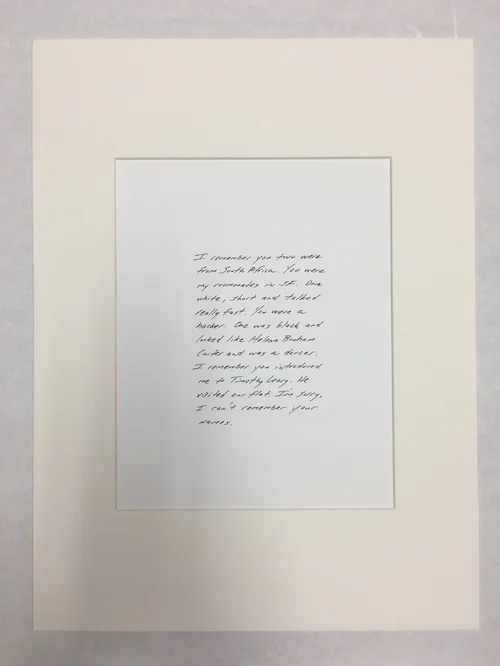 I remember you two were
from South Africa. You were
my roommates in SF. One
white, short and talked
really fast. You were a
hacker. One was black and
looked like Helena Bonham
Carter and was a dancer.
I remember you introduced
me to Timothy Leary. He
visited our flat. I'm sorry,
I can't remember your
names.